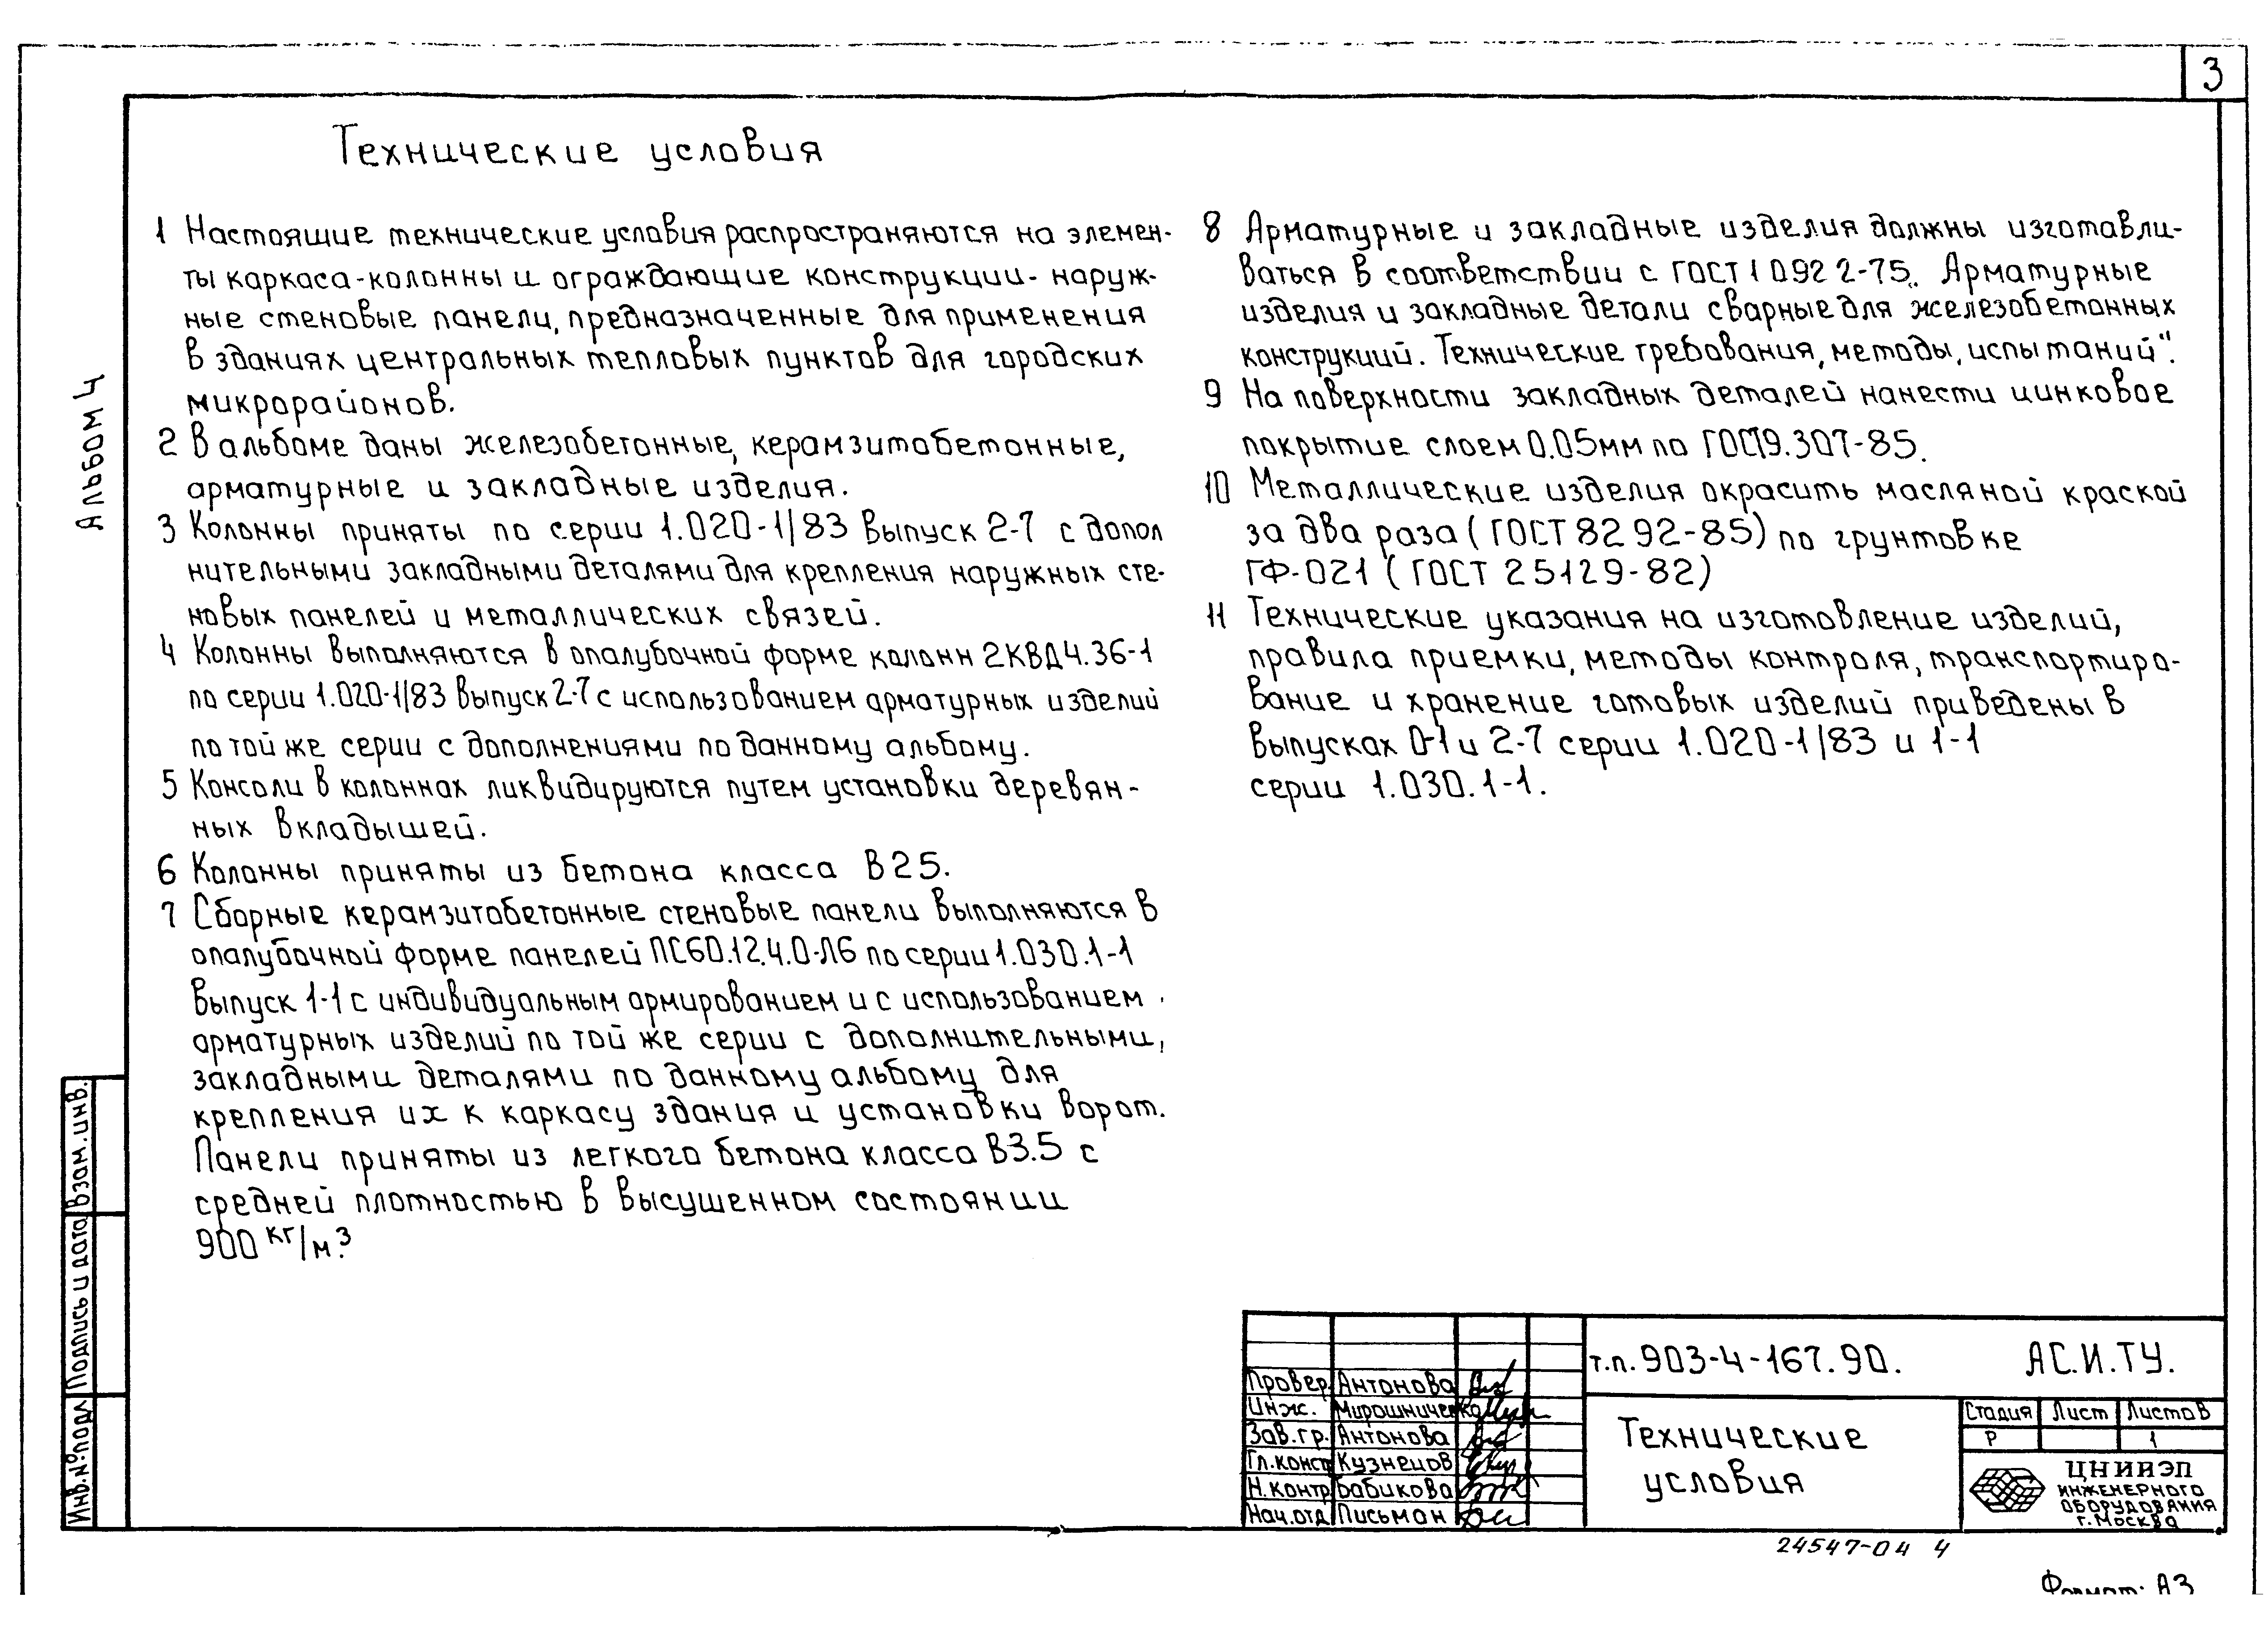 3
Технические условия
1 Настоящие технические условия распространяются на элемен-
ты каркаса-колонны и ограждающие конструкции- наруж-
ные стеновые панели, предназначенные для применения
в зданиях центральных тепловых пунктов для городских
микрорайонов.
2 В альбоме даны железобетонные, керамзитобетонные,
арматурные и закладные изделия.
3 Колонны приняты по серии 1.020-1/83 Выпуск 2-7 с допол
нительными закладными деталями для крепления наружных сте-
новых панелей и металлических связей.
4 Колонны выполняются в опалубочной форме колонн 2КВД4.36-1
по серии 1.020-1/83 Выпуск 2-7 с использованием арматурных изделий
по той же серии с дополнениями по данному альбому.
5 Консоли в колоннах ликвидируются путем установки деревян-
ных вкладышей.
6 Колонны приняты из бетона класса В25.
7 Сборные керамзитобетонные стеновые панели выполняются в
опалубочной форме панелей ПС60.12.4.0-Л6 по серии 1.030.1-1
Выпуск 1-1 с индивидуальным армированием и с использованием
арматурных изделий по той же серии с дополнительными,
закладными деталями по данному альбому для
крепления их к каркасу здания и установки ворот.
Панели приняты из легкого бетона класса В3.5 с
средней плотностью в высушенном состоянии
900 кг/м³.
8 Арматурные и закладные изделия должны изготавли-
ваться в соответствии с ГОСТ 10922-75 „Арматурные
изделия и закладные детали сварные для железобетонных
конструкций. Технические требования, методы, испытаний".
9 На поверхности закладных деталей нанести цинковое
покрытие слоем 0.05мм по ГОСТ9.307-85.
10 Металлические изделия окрасить масляной краской
за два раза (ГОСТ 8292-85) по грунтовке
ГФ-021 (ГОСТ 25129-82)
11 Технические указания на изготовление изделий,
правила приемки, методы контроля, транспортиро-
вание и хранение готовых изделий приведены в
выпусках 0-1 и 2-7 серии 1.020-1/83 и 1-1
серии 1.030.1-1.
Альбом 4
Взам.инв.
Подпись и дата
Инв.№подл
Провер. Антонова
Инж. Мирошниченко
Зав.гр. Антонова
Гл.конст Кузнецов
Н.контр Бабикова
Нач.отд Письман
т.п. 903-4-167.90. АС.И.ТУ.
Технические
условия
Стадия Лист Листов
Р 1
ЦНИИЭП
ИНЖЕНЕРНОГО
ОБОРУДОВАНИЯ
г. МОСКВА
24547-04 4
Формат: А3